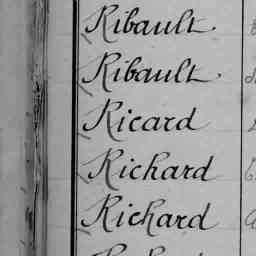 Ribault.
Ribault.
Ricard
Richard
Richard